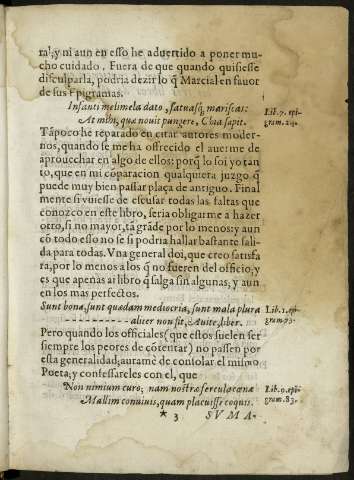 ral, y ni aun en esso he advertido a poner mu-
cho cuidado. Fuera de que quando quisiesse
disculparla, podria dezir lo q̃ Marcial en fauor
de sus Epigramas.
Infanti melimela dato, fatuasq; mariscas:
At mihi, quæ nouit pungere, Chia sapit.
Lib. 7. epi-
gram. 24.
Tãpoco he reparado en citar autores moder-
nos, quando se me ha ofrecido el auerme de
aprouechar en algo de ellos: porq̃ lo soi yo tan
to, que en mi cõparacion qualquiera juzgo q̃
puede muy bien passar plaça de antiguo. Final
mente si vuiesse de escusar todas las faltas que
conozco en este libro, seria obligarme a hazer
otro, si no mayor, tã grãde por lo menos: y aun
cõ todo esso no se si podria hallar bastante sali-
da para todas. Vna general doi, que creo satisfa
ra, por lo menos a los q̃ no fueren del officio, y
es que apenas ai libro q̃ salga sin algunas, y aun
en los mas perfectos.
Sunt bona, sunt quædam mediocria, sunt mala plura
- - - - - - - - - - aliter non fit, Auite, liber.
Lib. 1. epi-
gram. 73.
Pero quando los officiales (que estos suelen ser
siempre los peores de cõtentar) no passen por
esta generalidad; aurame de consolar el mismo
Poeta; y confessarles con el, que
Non nimium curo; nam nostræ fercula cœnæ
Mallim conuiuis, quam placuisse coquis.
Lib. 9. epi-
gram. 83.
* 3 SVMA-